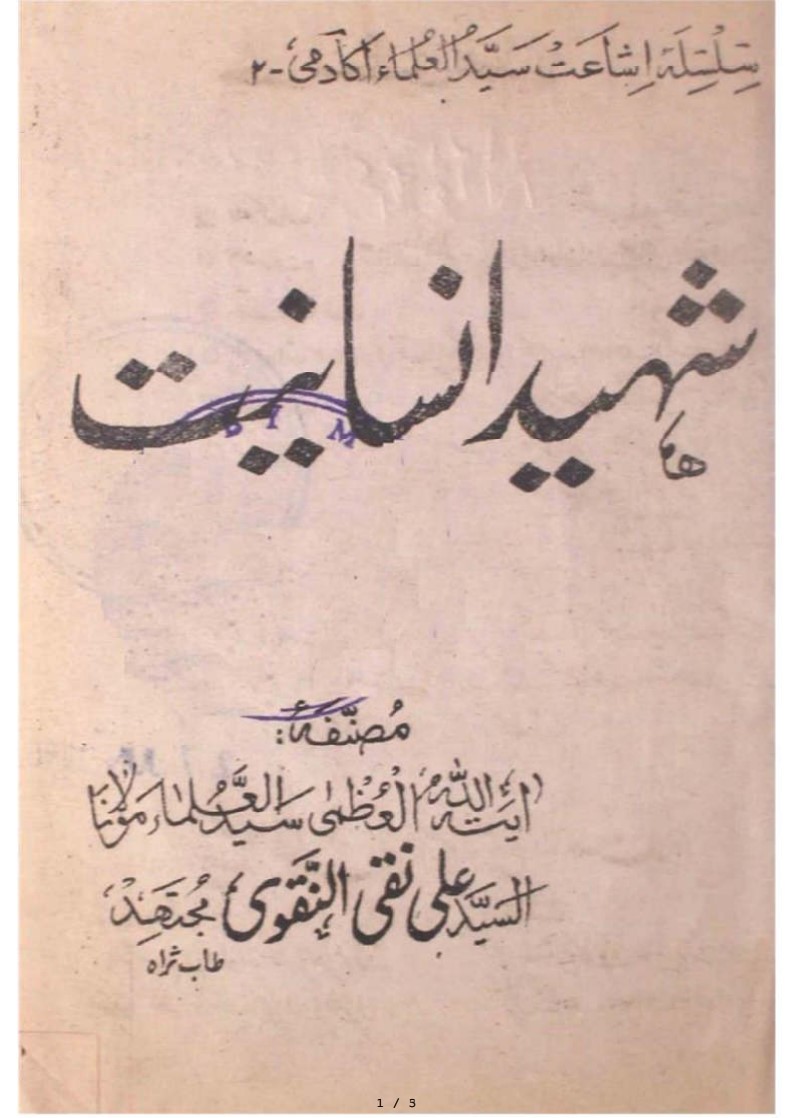 سِلْسِلَۂ اِشَاعَتْ سَیِّدُ العُلَماء اکادمی - ۲
شہید انسانیت
D I M
مُصنّفۂ:
آیتہ اللہ العُظمٰی سَیّدُ العُلَماء مَولانا
السیّد علی نقی النّقوی مُجتَھِدْ
طاب ثراہ
1 / 3